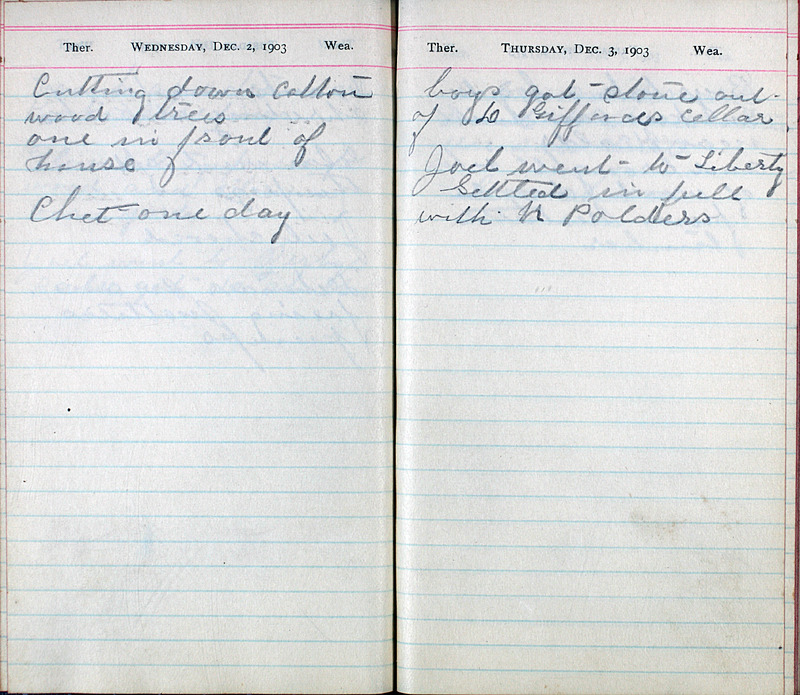 Ther. Wednesday, Dec. 2, 1903 Wea.
Cutting down cotton
wood trees
one in front of
house
Chet one day
Ther. Thursday, Dec. 3, 1903 Wea.
boys got stone out
of Giffords cellar
Joel went to Liberty
Settled in full
with Polders